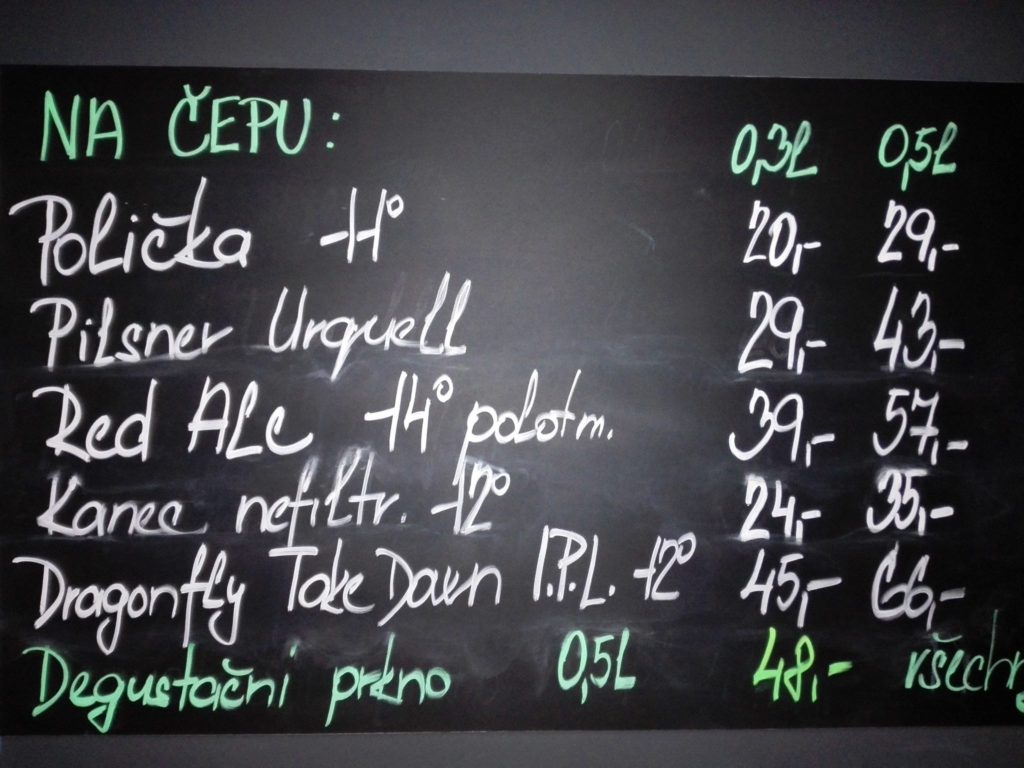 NA ČEPU: 0,3l 0,5l
Polička 11° 20,- 29,-
Pilsner Urquell 29,- 43,-
Red Ale 14° polotm. 39,- 57,-
Kanec nefiltr. 12° 24,- 35,-
Dragonfly Take Down I.P.L. 12° 45,- 66,-
Degustační prkno 0,5l 48,- všechny